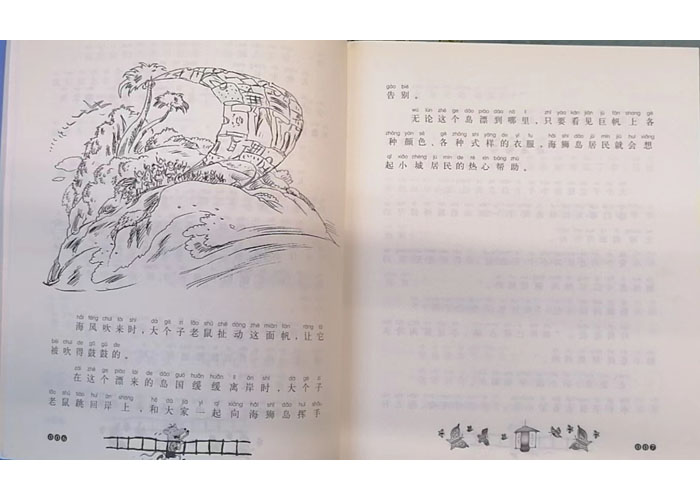 hǎi fēng chuī lái shí dà gè zi lǎo shǔ chě dòng zhè miàn fān ràng tā
海风吹来时，大个子老鼠扯动这面帆，让它
bèi chuī de gǔ gǔ de
被吹得鼓鼓的。
zài zhè ge piāo lái de dǎo guó huǎn huǎn lí àn shí dà gè zi
在这个漂来的岛国缓缓离岸时，大个子
lǎo shǔ tiào huí àn shàng hé dà jiā yì qǐ xiàng hǎi shī dǎo huī shǒu
老鼠跳回岸上，和大家一起向海狮岛挥手
006
gào bié
告别。
wú lùn zhè ge dǎo piāo dào nǎ lǐ zhǐ yào kàn jiàn jù fān shàng gè
无论这个岛漂到哪里，只要看见巨帆上各
zhǒng yán sè gè zhǒng shì yàng de yī fu hǎi shī dǎo jū mín jiù huì xiǎng
种颜色、各种式样的衣服，海狮岛居民就会想
qǐ xiǎo chéng jū mín de rè xīn bāng zhù
起小城居民的热心帮助。
007